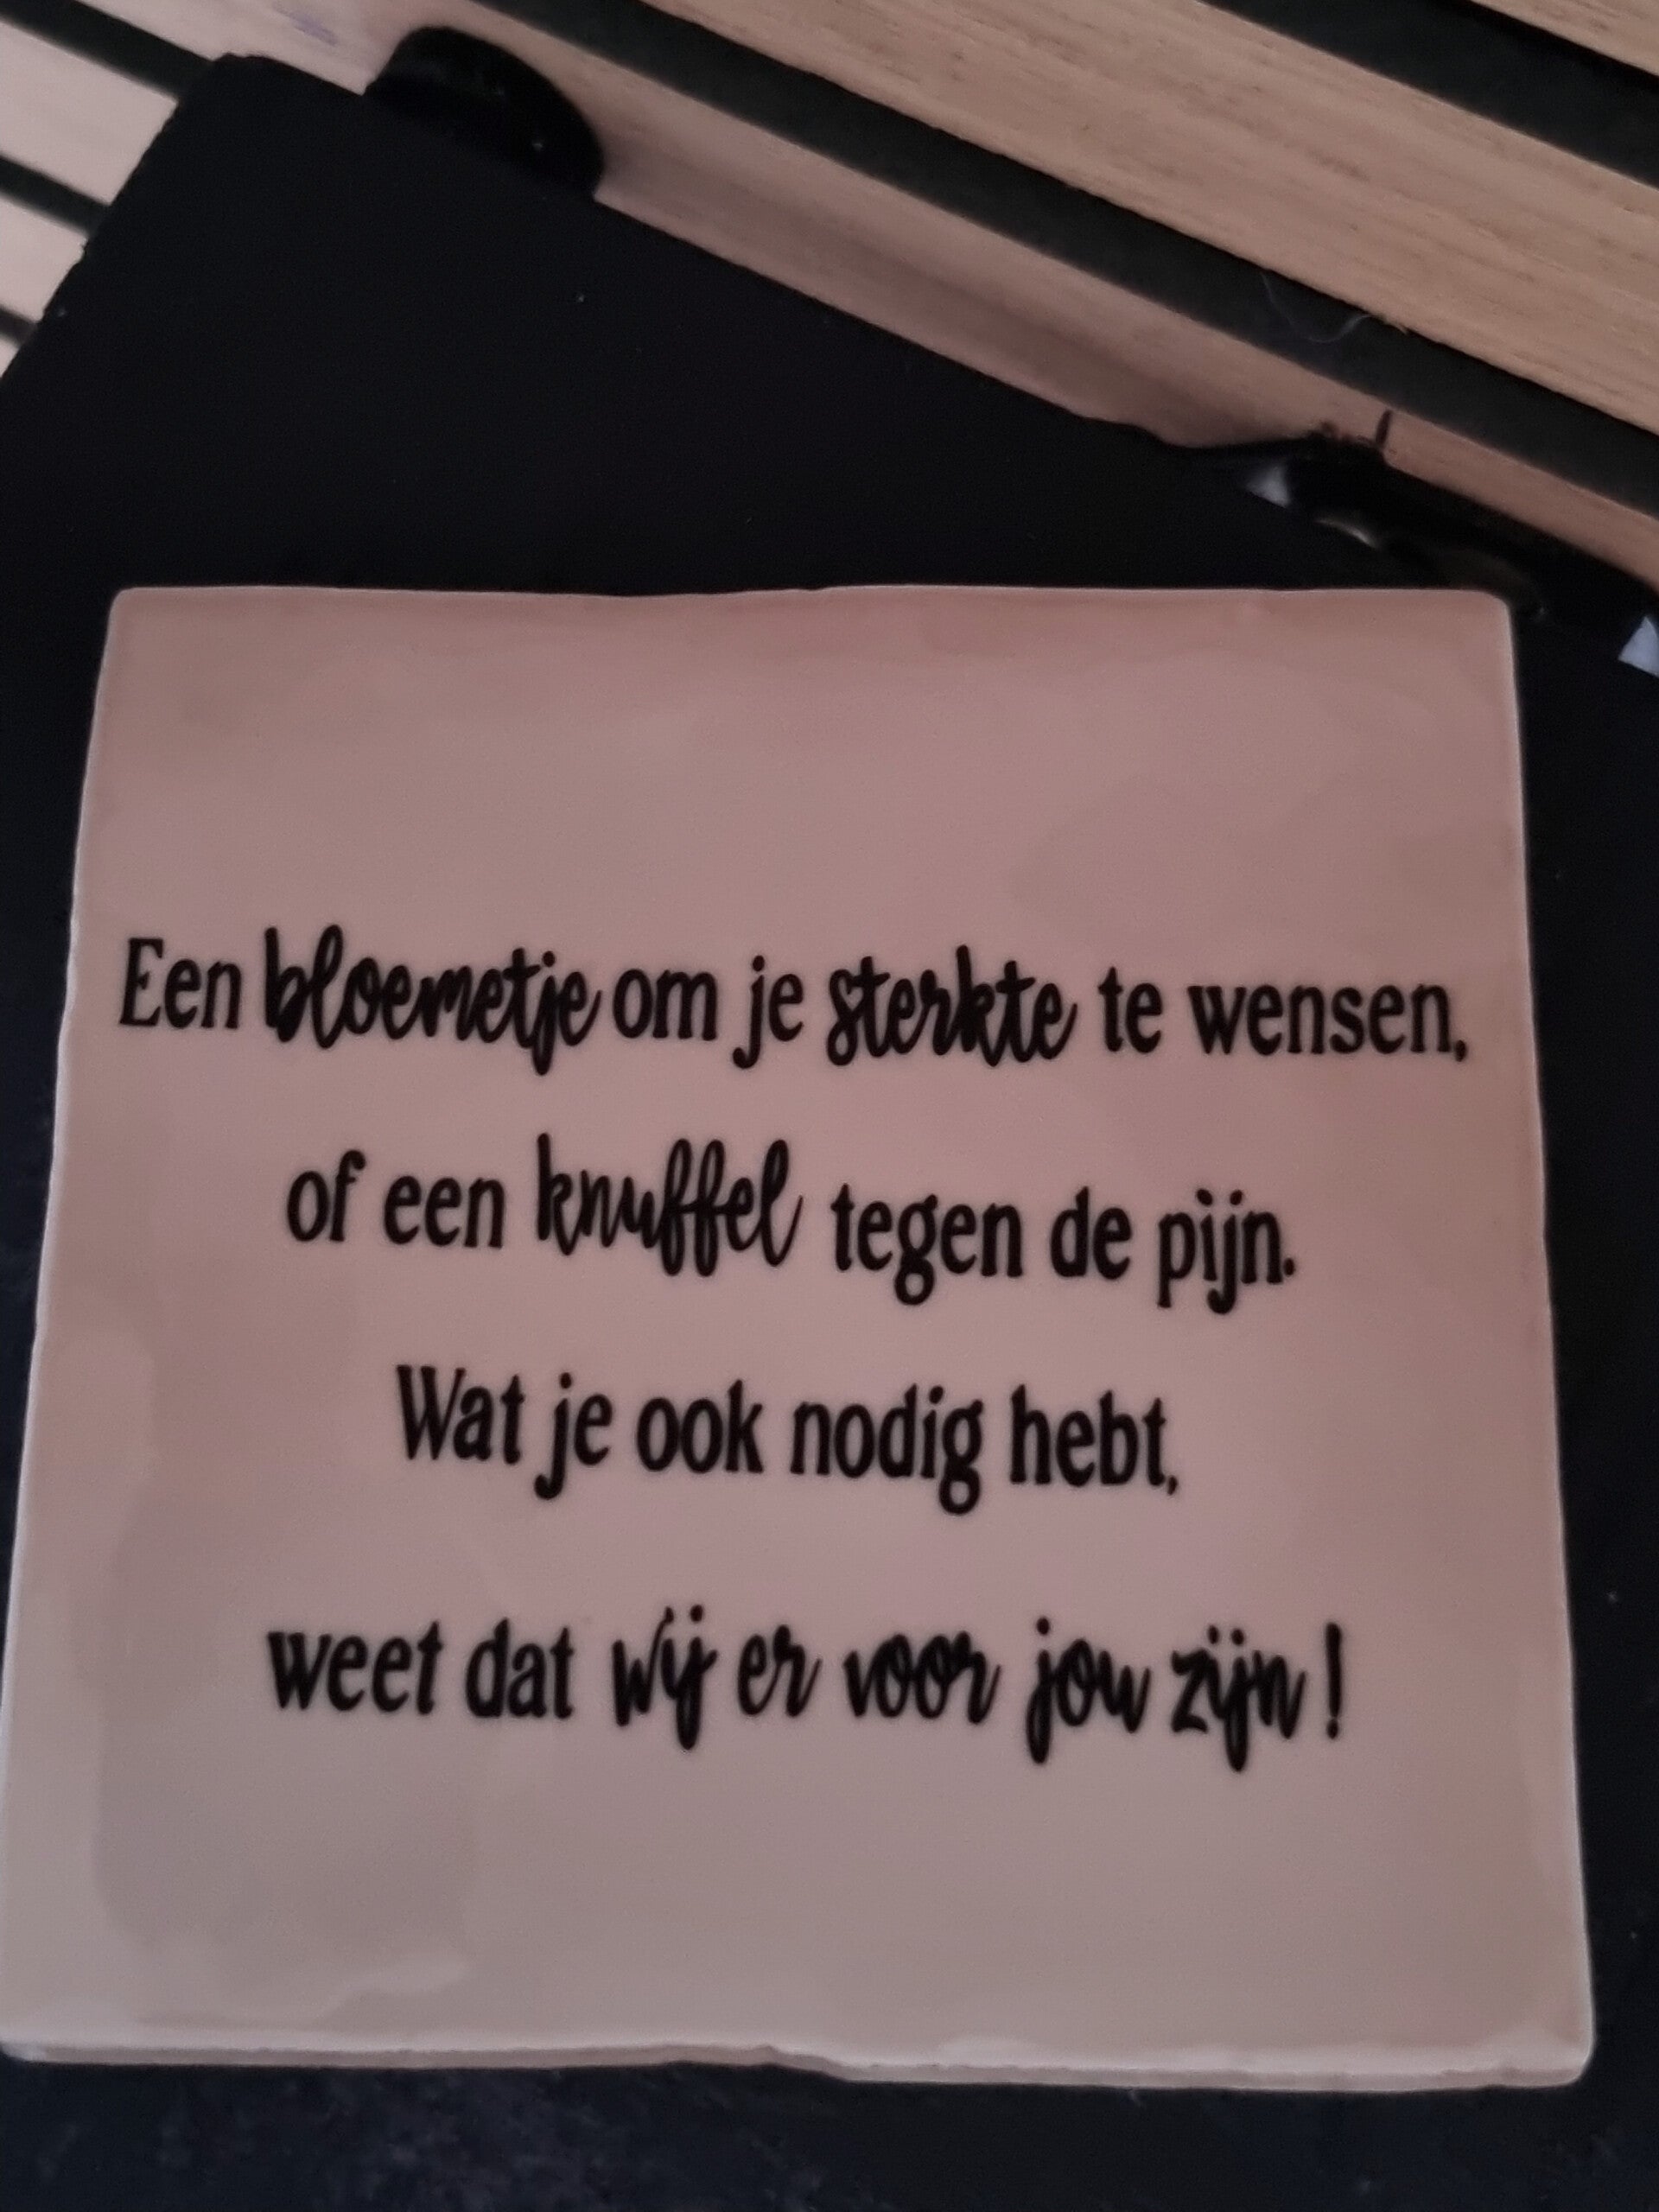 Een bloemetje om je sterkte te wensen,
of een knuffel tegen de pijn.
Wat je ook nodig hebt,
weet dat wij er voor jou zijn!